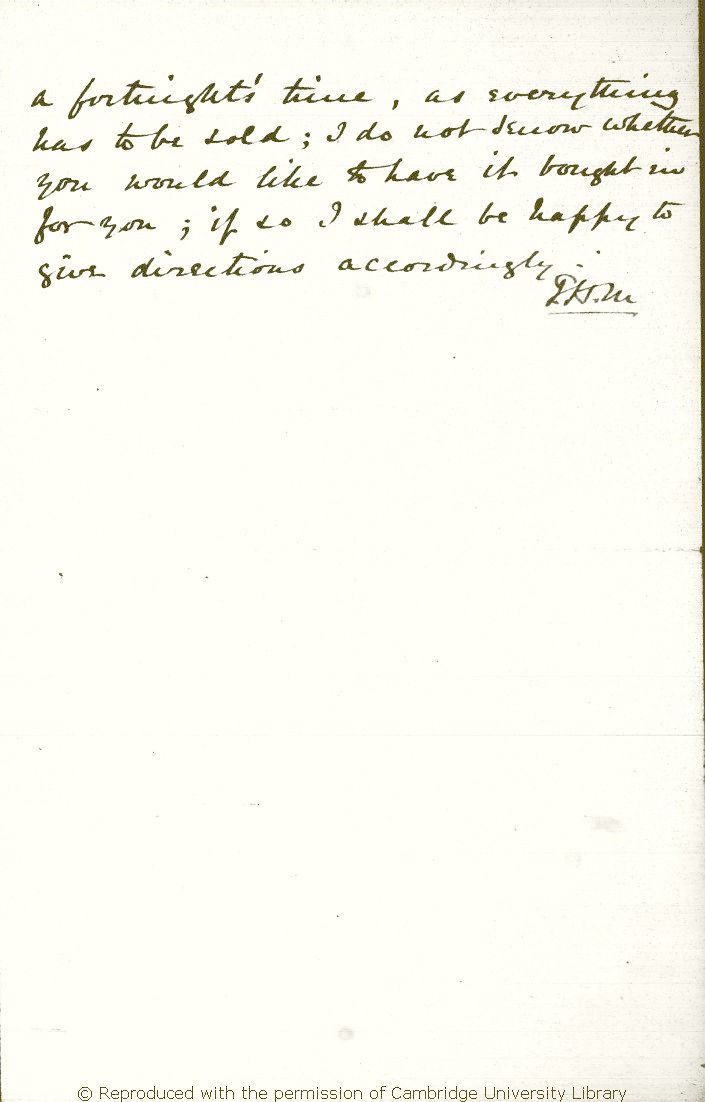 a fortnight's time, as everything
has to be sold; I do not know whether
you would like to have it bought in
for you; if so I shall be happy to
give directions accordingly.
© Reproduced with the permission of Cambridge University Library